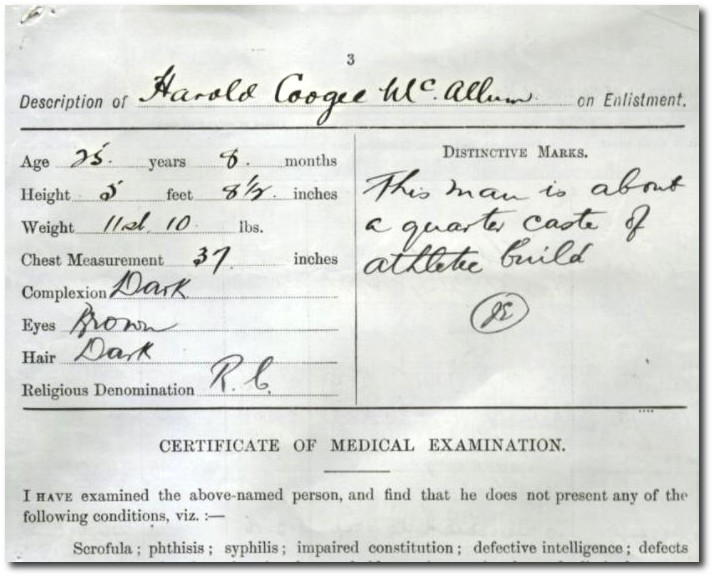 3
Description of Harold Coogee McAllum on Enlistment.
Age 25 years 8 months
Height 5 feet 8½ inches
Weight 11st. 10 lbs.
Chest Measurement 37 inches
Complexion Dark
Eyes Brown
Hair Dark
Religious Denomination R.C.
DISTINCTIVE MARKS.
This man is about
a quarter caste of
athletic build
JE
CERTIFICATE OF MEDICAL EXAMINATION.
I HAVE examined the above-named person, and find that he does not present any of the
following conditions, viz. :—
Scrofula ; phthisis ; syphilis ; impaired constitution ; defective intelligence ; defects